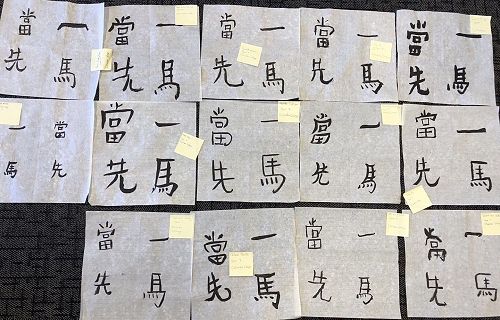 一馬
當先
一馬
當先
一馬
當先
一馬
當先
一馬
當先
一馬
當先
一馬
當先
一馬
當先
一馬
當先
一馬
當先
一馬
當先
一馬
當先
一馬
當先
一馬
當先